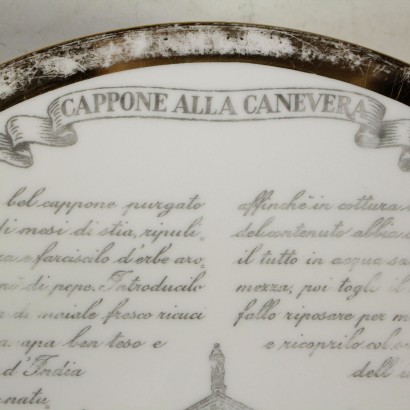 CAPPONE ALLA CANEVERA
bel cappone purgato
di mesi di stia, ripuli-
e farciscilo d'erbe aro-
di pepe. Introducilo
di maiale fresco ricuci
apa ben teso e
d'India
natu
affinchè in cottura
del contenuto abbia
il tutto in acqua sa
mezza; poi togli il
fallo riposare per m
e ricoprilo col
dell